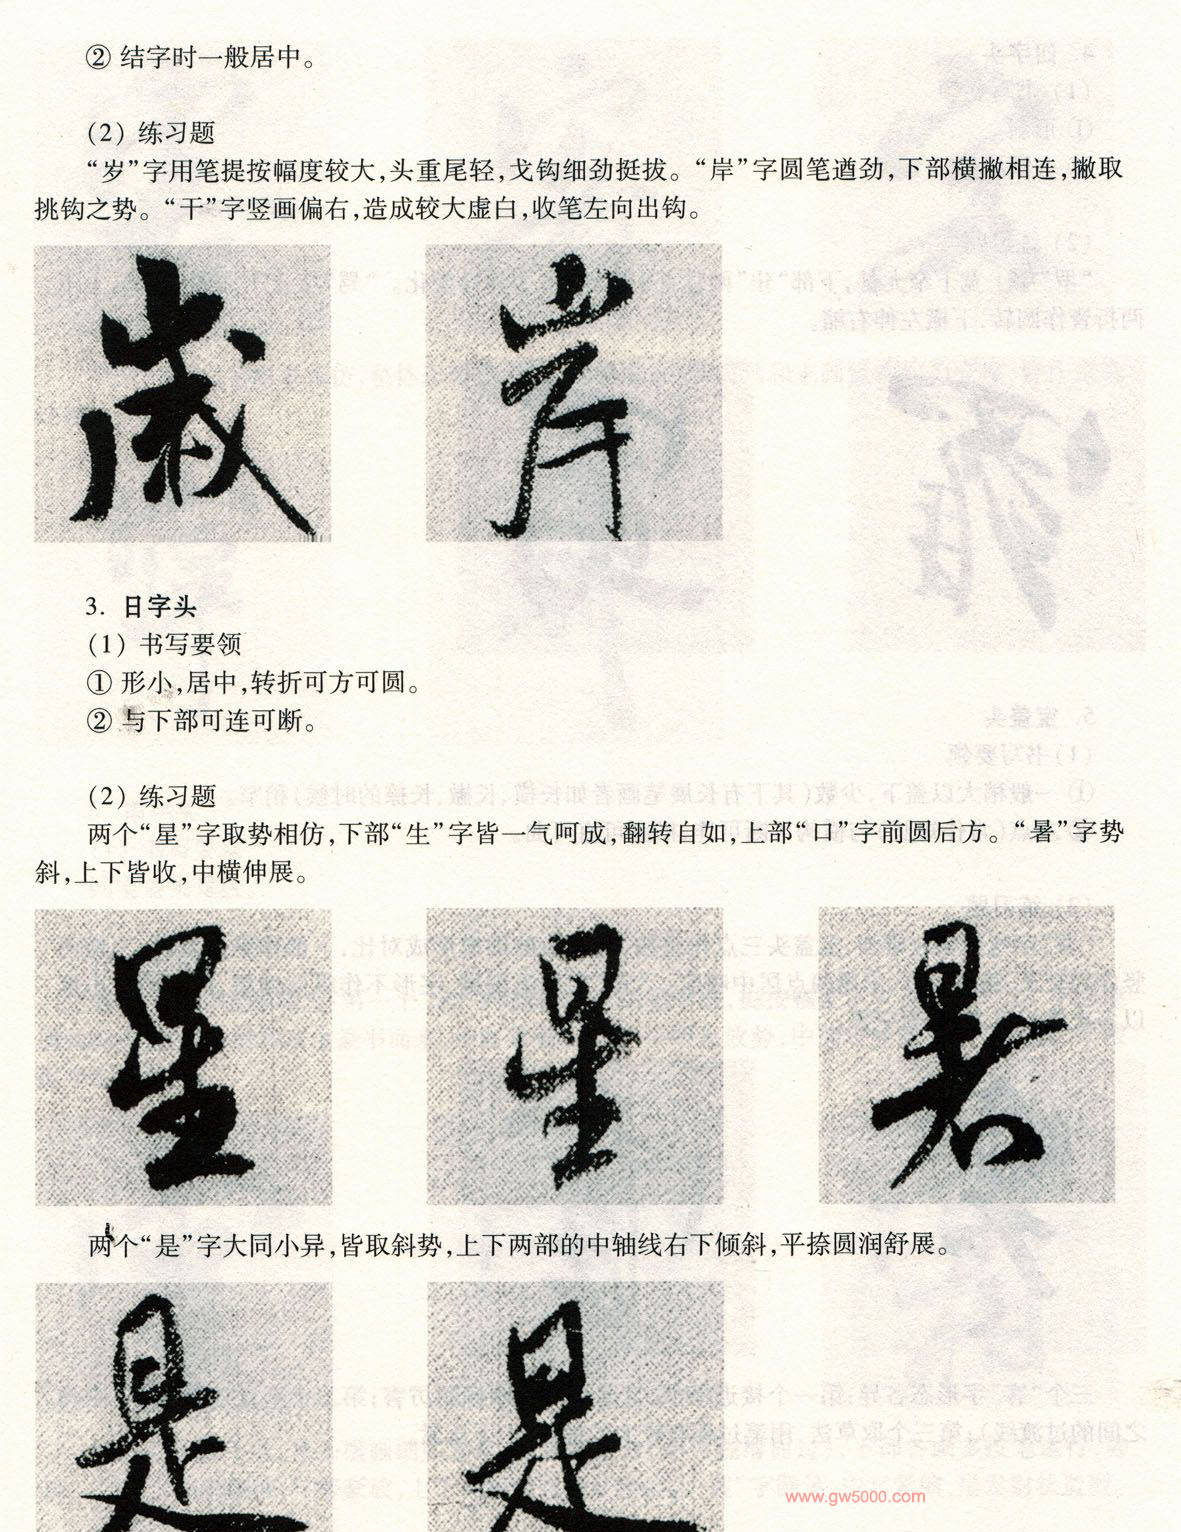 ② 结字时一般居中。
(2) 练习题
“岁”字用笔提按幅度较大,头重尾轻,戈钩细劲挺拔。“岸”字圆笔遒劲,下部横撇相连,撇取
挑钩之势。“干”字竖画偏右,造成较大虚白,收笔左向出钩。
歲 岸
3. 日字头
(1) 书写要领
① 形小,居中,转折可方可圆。
② 与下部可连可断。
(2) 练习题
两个“星”字取势相仿,下部“生”字皆一气呵成,翻转自如,上部“口”字前圆后方。“暑”字势
斜,上下皆收,中横伸展。
星 星 暑
两个“是”字大同小异,皆取斜势,上下两部的中轴线右下倾斜,平捺圆润舒展。
是 是
www.gw5000.com